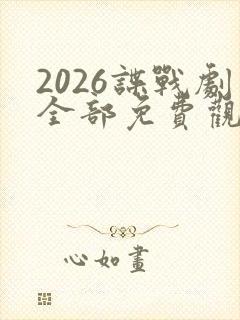 2026諜戰劇
全部免費觀
心如畫